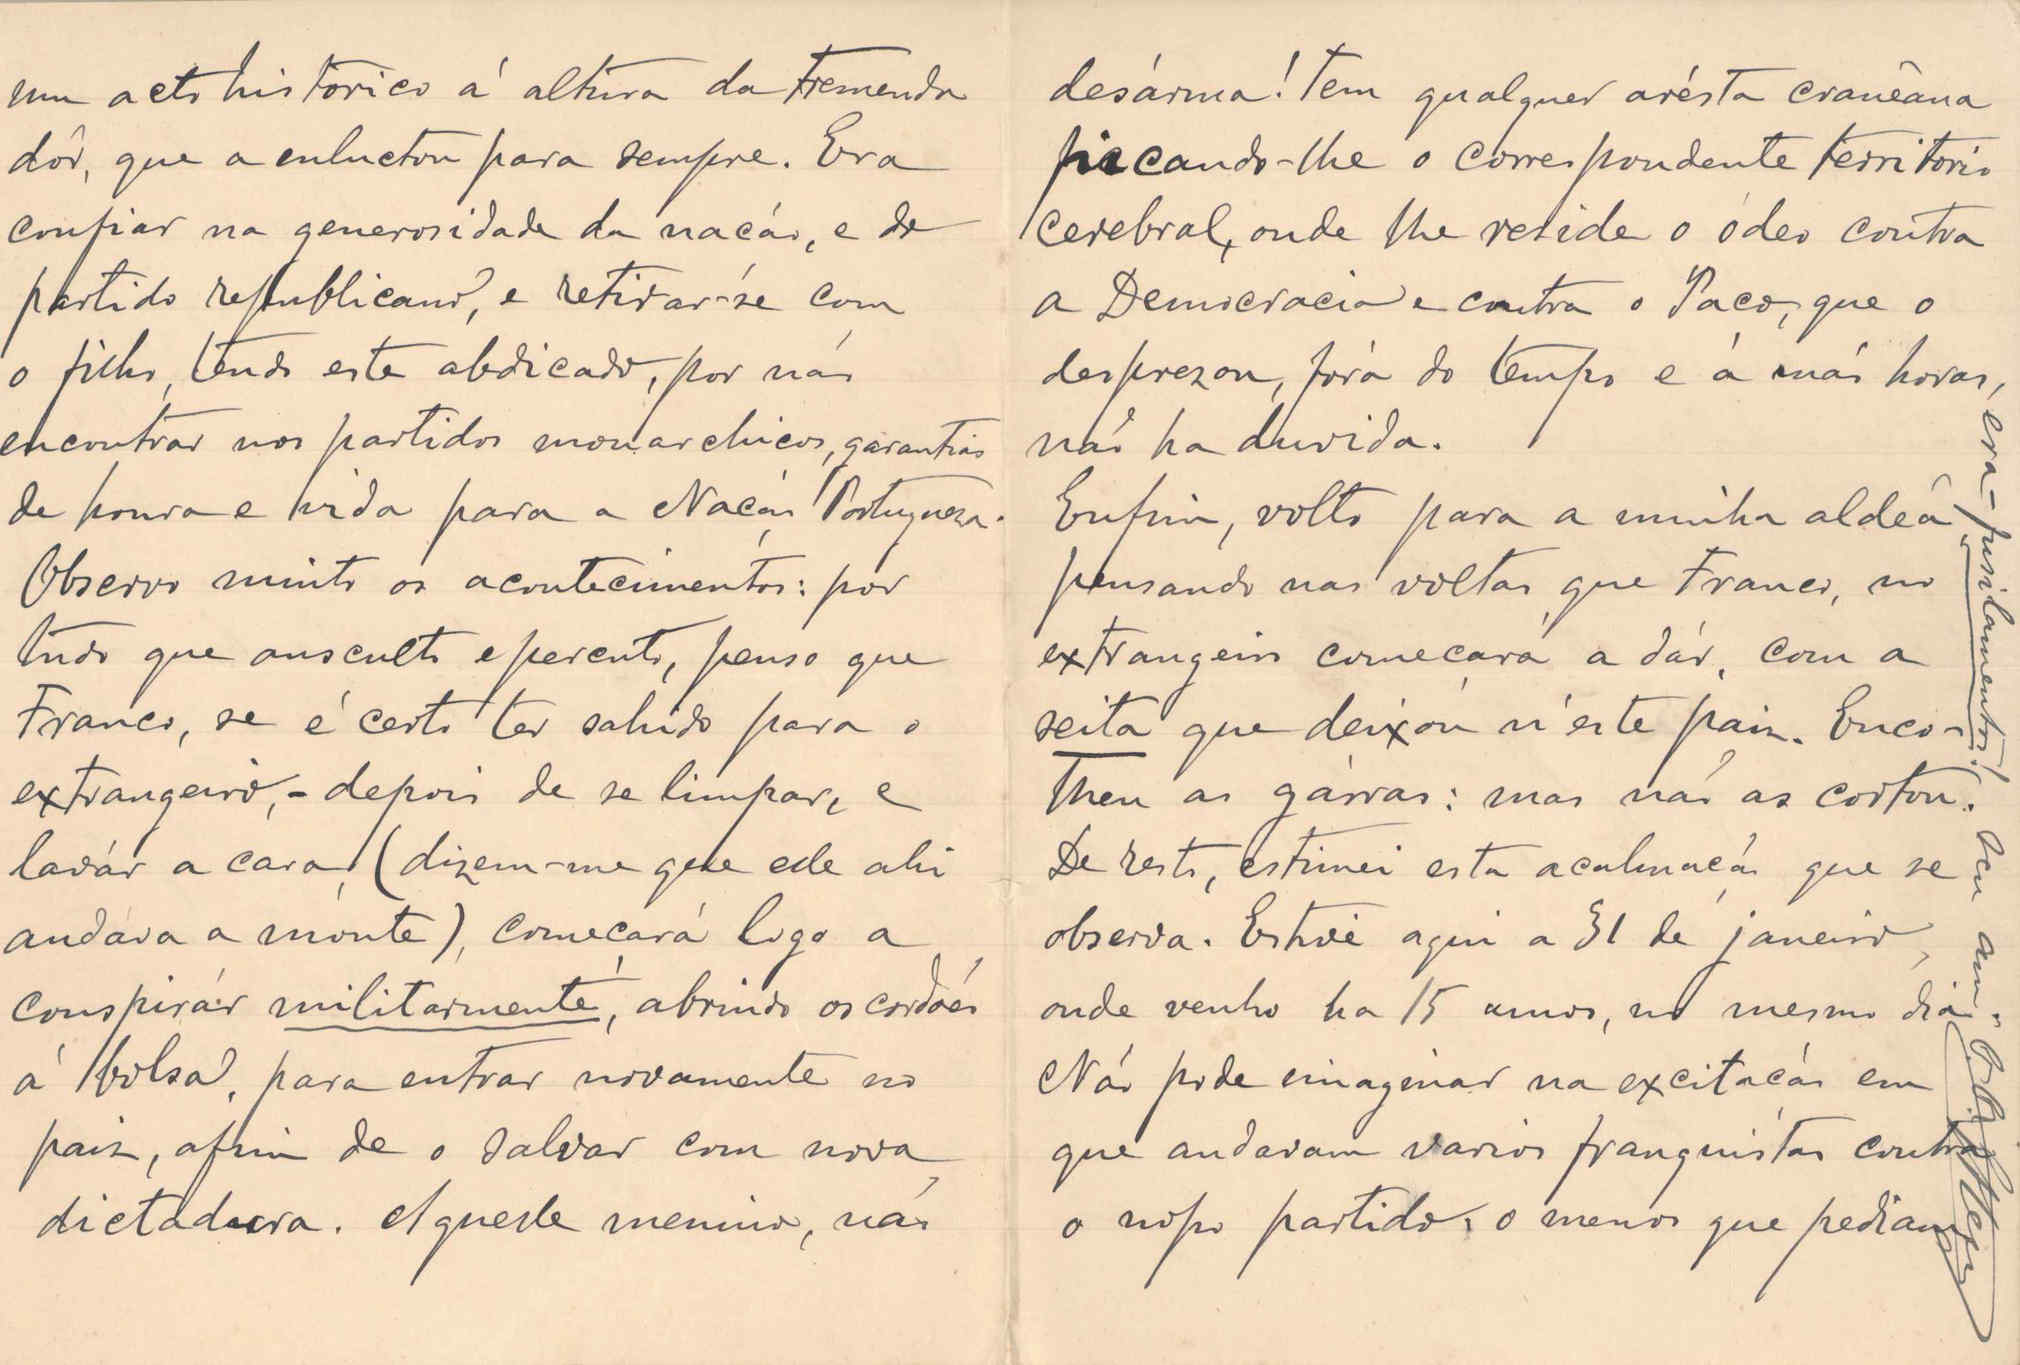 um acto historico á altura da tremenda
dôr, que a enluctou para sempre. Era
confiar na generosidade da nação, e do
partido republicano, e retirar-se com
o filho, tendo este abdicado, por não
encontrar nos partidos monarchicos, garantias
de honra e vida para a Nação Portugueza.
Observo muito os acontecimentos: por
tudo que ausculto e percuto, penso que
Franco, se é certo ter sahido para o
extrangeiro, - depois de se limpar, e
lavár a cara, (dizem-me que elle ahi
andáva a mónte), começará logo a
conspirár militarmente, abrindo os cordões
á bolsa, para entrar novamente no
paiz, afim de o salvar com nova
dictadura. Aquelle menino, não
desárma! Tem qualquer arésta craneâna
picando-lhe o correspondente territorio
cerebral, onde lhe reside o ódeo contra
a Democracia e contra o Paço, que o
desprezou, fóra do tempo e á más horas,
não ha duvida.
Enfim, volto para a minha aldeâ
pensando nas voltas que Franco, no
extrangeiro começará a dár, com a
seita que deixou n'este paiz. Enco-
lheu as gárras: mas não as cortou.
De resto, estimei esta acalmação que se
observa. Estive aqui a 31 de janeiro,
onde venho ha 15 annos, no mesmo dia.
Não póde imaginar na excitação em
que andavam varios franquistas contra
o nosso partido: o menos que pediam
era - fusilamentos! Seu am.º